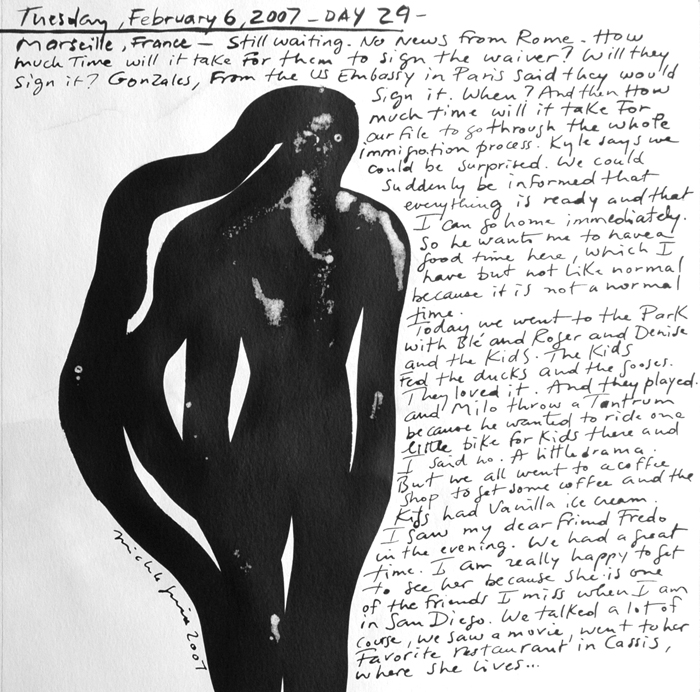 Tuesday, February 6, 2007 - DAY 29 -
Marseille, France - Still waiting. No News from Rome. How
much Time will it take for them to sign the waiver? Will they
sign it? Gonzales, from the US Embassy in Paris said they would
sign it. When? And then How
much time will it take For
our file to go through the whole
immigration process. Kyle says we
could be surprised. We could
suddenly be informed that
everything is ready and that
I can go home immediately.
So he wants me to have a
good time here, which I
have but not like normal
because it is not a normal
time.
Today we went to the Park
with Blé and Roger and Denise
and the Kids. The Kids
Fed the ducks and the gooses.
They loved it. And they played.
and Milo throw a Tantrum
because he wanted to ride one
little bike for kids there and
I said no. A little drama.
But we all went to a coffee
shop to get some coffee and the
Kids had Vanilla ice cream.
I saw my dear friend Fredo
in the evening. We had a great
time. I am really happy to get
to see her because she is one
of the friends I miss when I am
in San Diego. We talked a lot of
course, we saw a movie, went to her
Favorite restaurant in Cassis,
where she lives...
2007